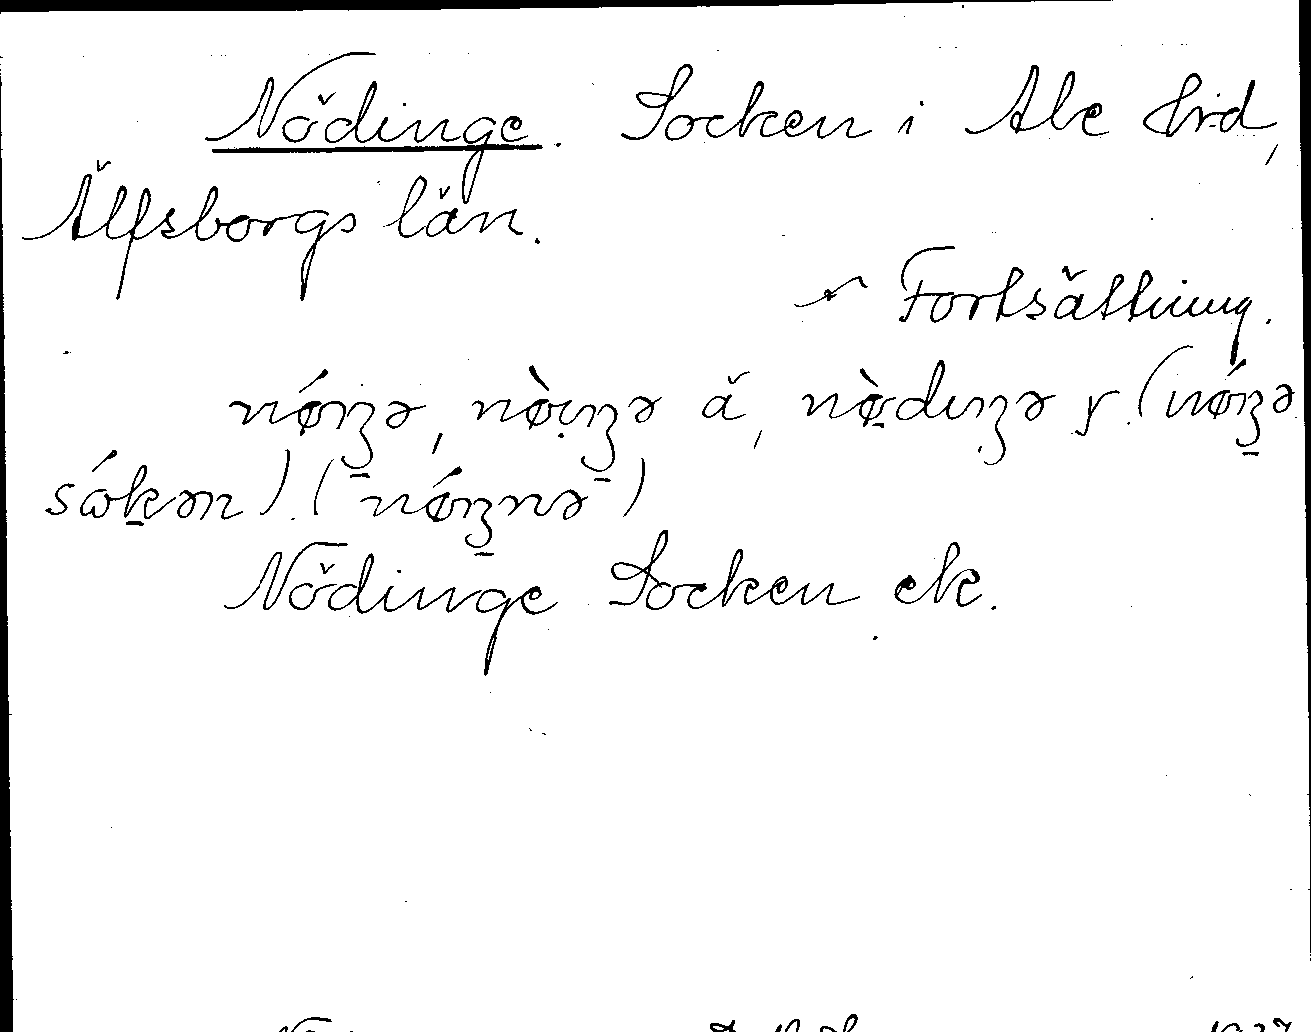 Nödinge. Socken i Ale Hrd,
Älfsborgs län.
Fortsättning.
nǿŋə, nø̀ıŋə ä, nø̀dıŋə y. (nǿŋə
sɷ́kən). (nǿŋnə)
Nödinge Socken ek.